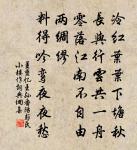 冷紅葉葉下塘秋
長與行雲共一舟
零落江南不自由
兩綢繆
料得吟鸞夜夜愁
姜夔憶王孫番陽彭氏
小樓作詞典網